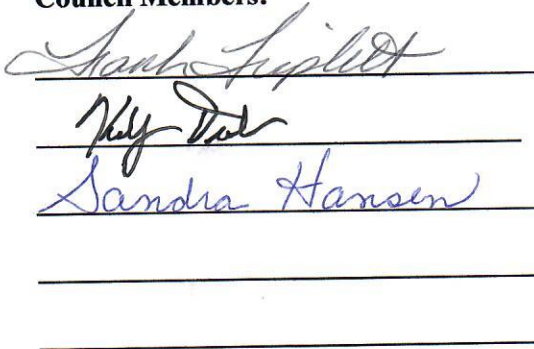 Council Members:
Frank Triplett
Sandra Hansen